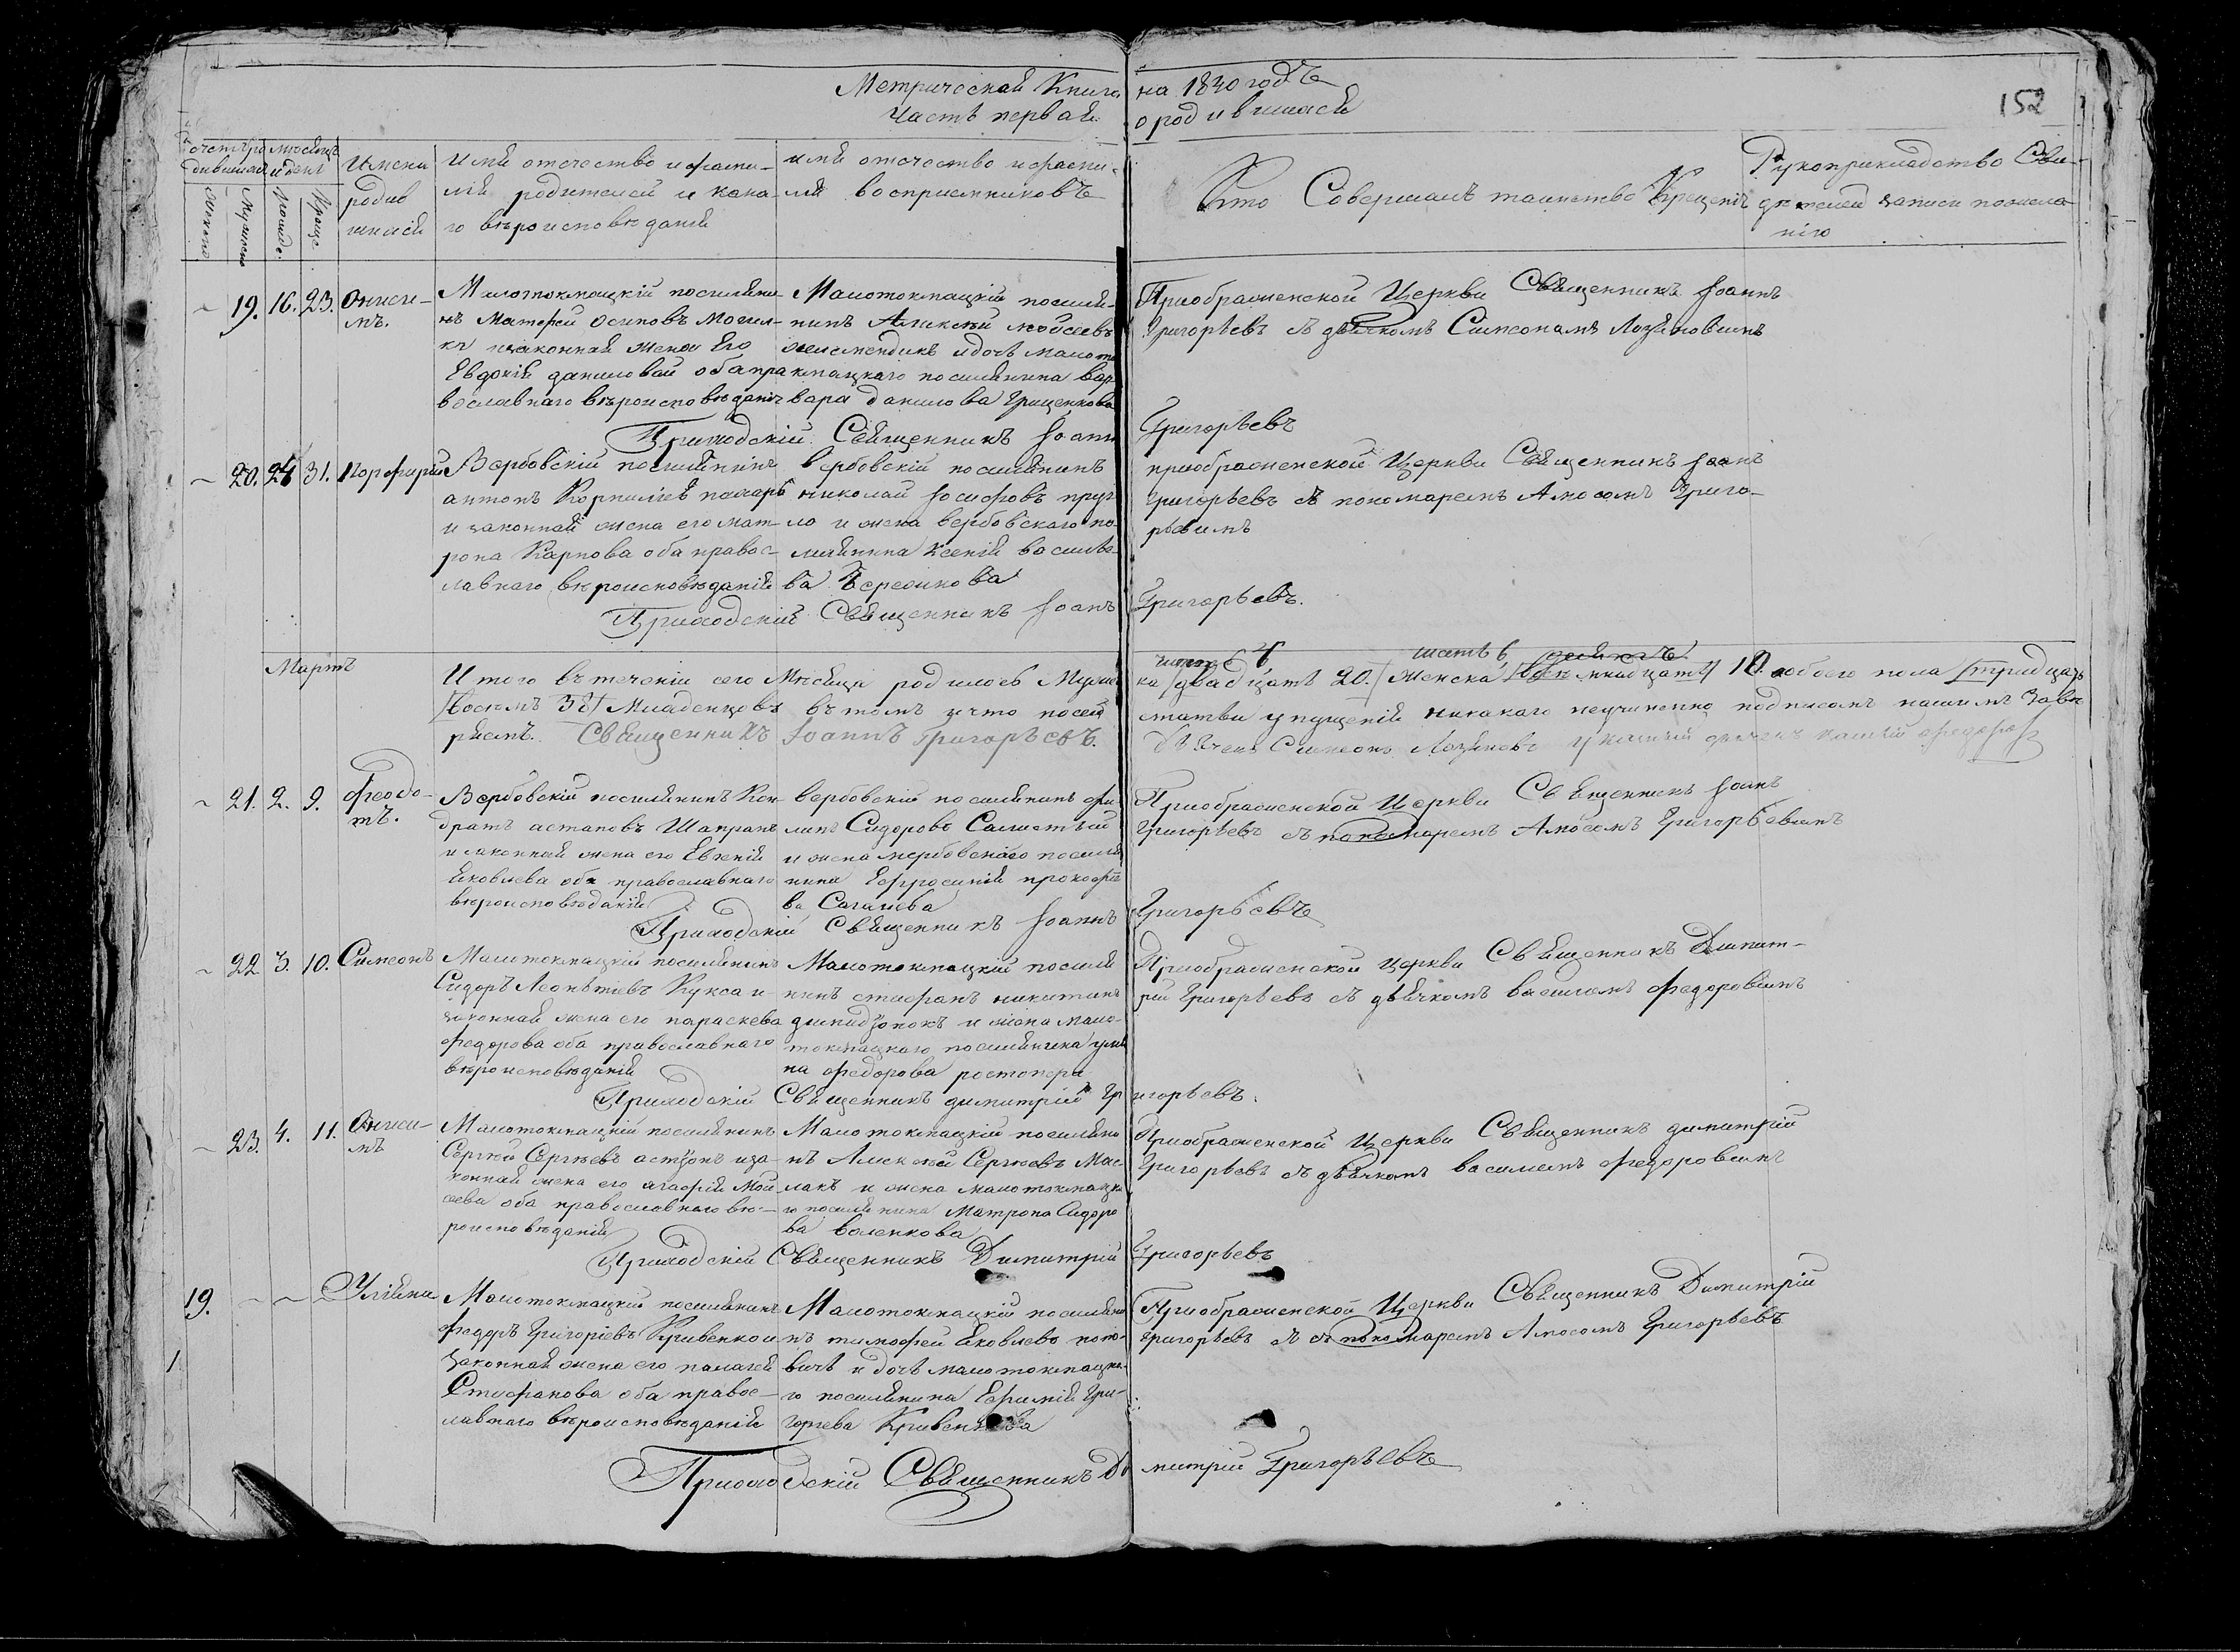 Метрической Книги на 1840 годъ
Часть первая о родившихся
152
Счетъ ро дившихся
месяцъ и день
Имена родив шихся
Имя отечество и фами- лія родителей и кака- го вероисповеданія
имя отечество и фами- лія восприемниковъ
Кто Совершалъ таинство Крещенія
Рукоприкладство Сви- детелей записи по жела- нію
Женска
Мужеска
рожде.
Креще.
~ 19. 16. 23. Ониси- мъ.
Малотокмацкій поселяни-
нъ Матфей Осиповъ Могил-
ка изаконная жена Его
Евдокія данилова оба пра
вославнаго вероисповеданія
Малотокмацкій поселя-
нинъ Алексей мойсеевъ
и дочь малото
кмацкаго поселянина вар
вара данилова Гриценкова
Преображенской Церкви Священникъ Іоаннъ
Григорьевъ съ дьячкомъ Симеономъ
Приходскій Священникъ Іоаннъ Григорьевъ
~ 20. 24 31. Порфирій
Вербовскій поселянинъ
антонъ Корниліевъ
и законная жена его мат-
рона Карпова оба правос-
лавнаго вероисповеданія
вербовскій поселянинъ
николай Іосифовъ
и жена вербовскаго по-
селянина Ксенія василье-
ва
преображенской Церкви Священникъ Іоанъ
Григорьевъ съ пономаремъ Амосомъ Григо-
рьевимъ
Приходскій Священникъ Іоанъ Григорьевъ.
Мартъ
Итого въ теченіи сего Месяца родилось Муже
ка двадцать 20. женска 18. обоего пола тридцать
восемъ 38 Младенцовъ въ томъ и что посей
упущенія никакаго неучиненно подписомъ нашимъ заве
ряемъ. Священникъ Іоаннъ Григорьевъ.
дьячекъ Симеонъ
~ 21. 2. 9. Феодо- тъ.
Вербовскій поселянинъ Кон
дратъ астаповъ Шапранъ
и законная жена его Евгенія
Яковлева оба православнаго
вероисповеданія
вербовскій поселянинъ фи-
липъ Сидоровъ
и жена вербовскаго поселя
нина Ефросинія прокофіе
ва
Преображенской Церкви Священникъ Іоанъ
Григорьевъ съ пономаремъ Амосомъ Григорьевимъ
Приходскій Священникъ Іоаннъ Григорьевъ
~ 22 3. 10. Симеонъ
Малотокмацкій поселянинъ
Сидоръ Леонтіевъ Кукса и
законная жена его параскева
федорова оба православнаго
вероисповеданія
Малотокмацкій поселя
нинъ стефанъ никитинъ
и жена мало-
токмацкаго поселянина улья
на федорова
Преображенской церкви Священникъ Димит-
рій Григорьевъ съ дьячкомъ василемъ федоровимъ
Приходскій Священникъ димитрій Григорьевъ.
~ 23. 4. 11. Ониси- мъ
Малотокмацкій поселянинъ
Сергей Сергеевъ иза-
конная жена его агафія Мой
сеева оба православнаго ве-
роисповеданія
Малотокмацкій поселяни
нъ Алексей Сергеевъ Мас-
лакъ и жена малотокмацка
го поселянина Матрона Сидоро
ва
Преображенской Церкви Священникъ димитрій
Григорьевъ съ дьячкомъ василемъ федоровимъ
Приходскій Священникъ Димитрій Григорьевъ
19. ~ ~ ~ Уліяна
Малотокмацкій поселянинъ
федоръ Григоріевъ Кривенко и
законная жена его палагея
Стефанова оба правос-
лавнаго вероисповеданія
Малотокмацкій поселяни
нъ тимофей Яковлевъ попо-
вичъ и дочь малотокмацка-
го поселянина Ефимія Гри-
горева Кривенкова
Преображенской Церкви Священникъ Димитрій
Григорьевъ съ пономаремъ Амосомъ Григорьевъ
1
Приходскій Священникъ Димитрій Григорьевъ